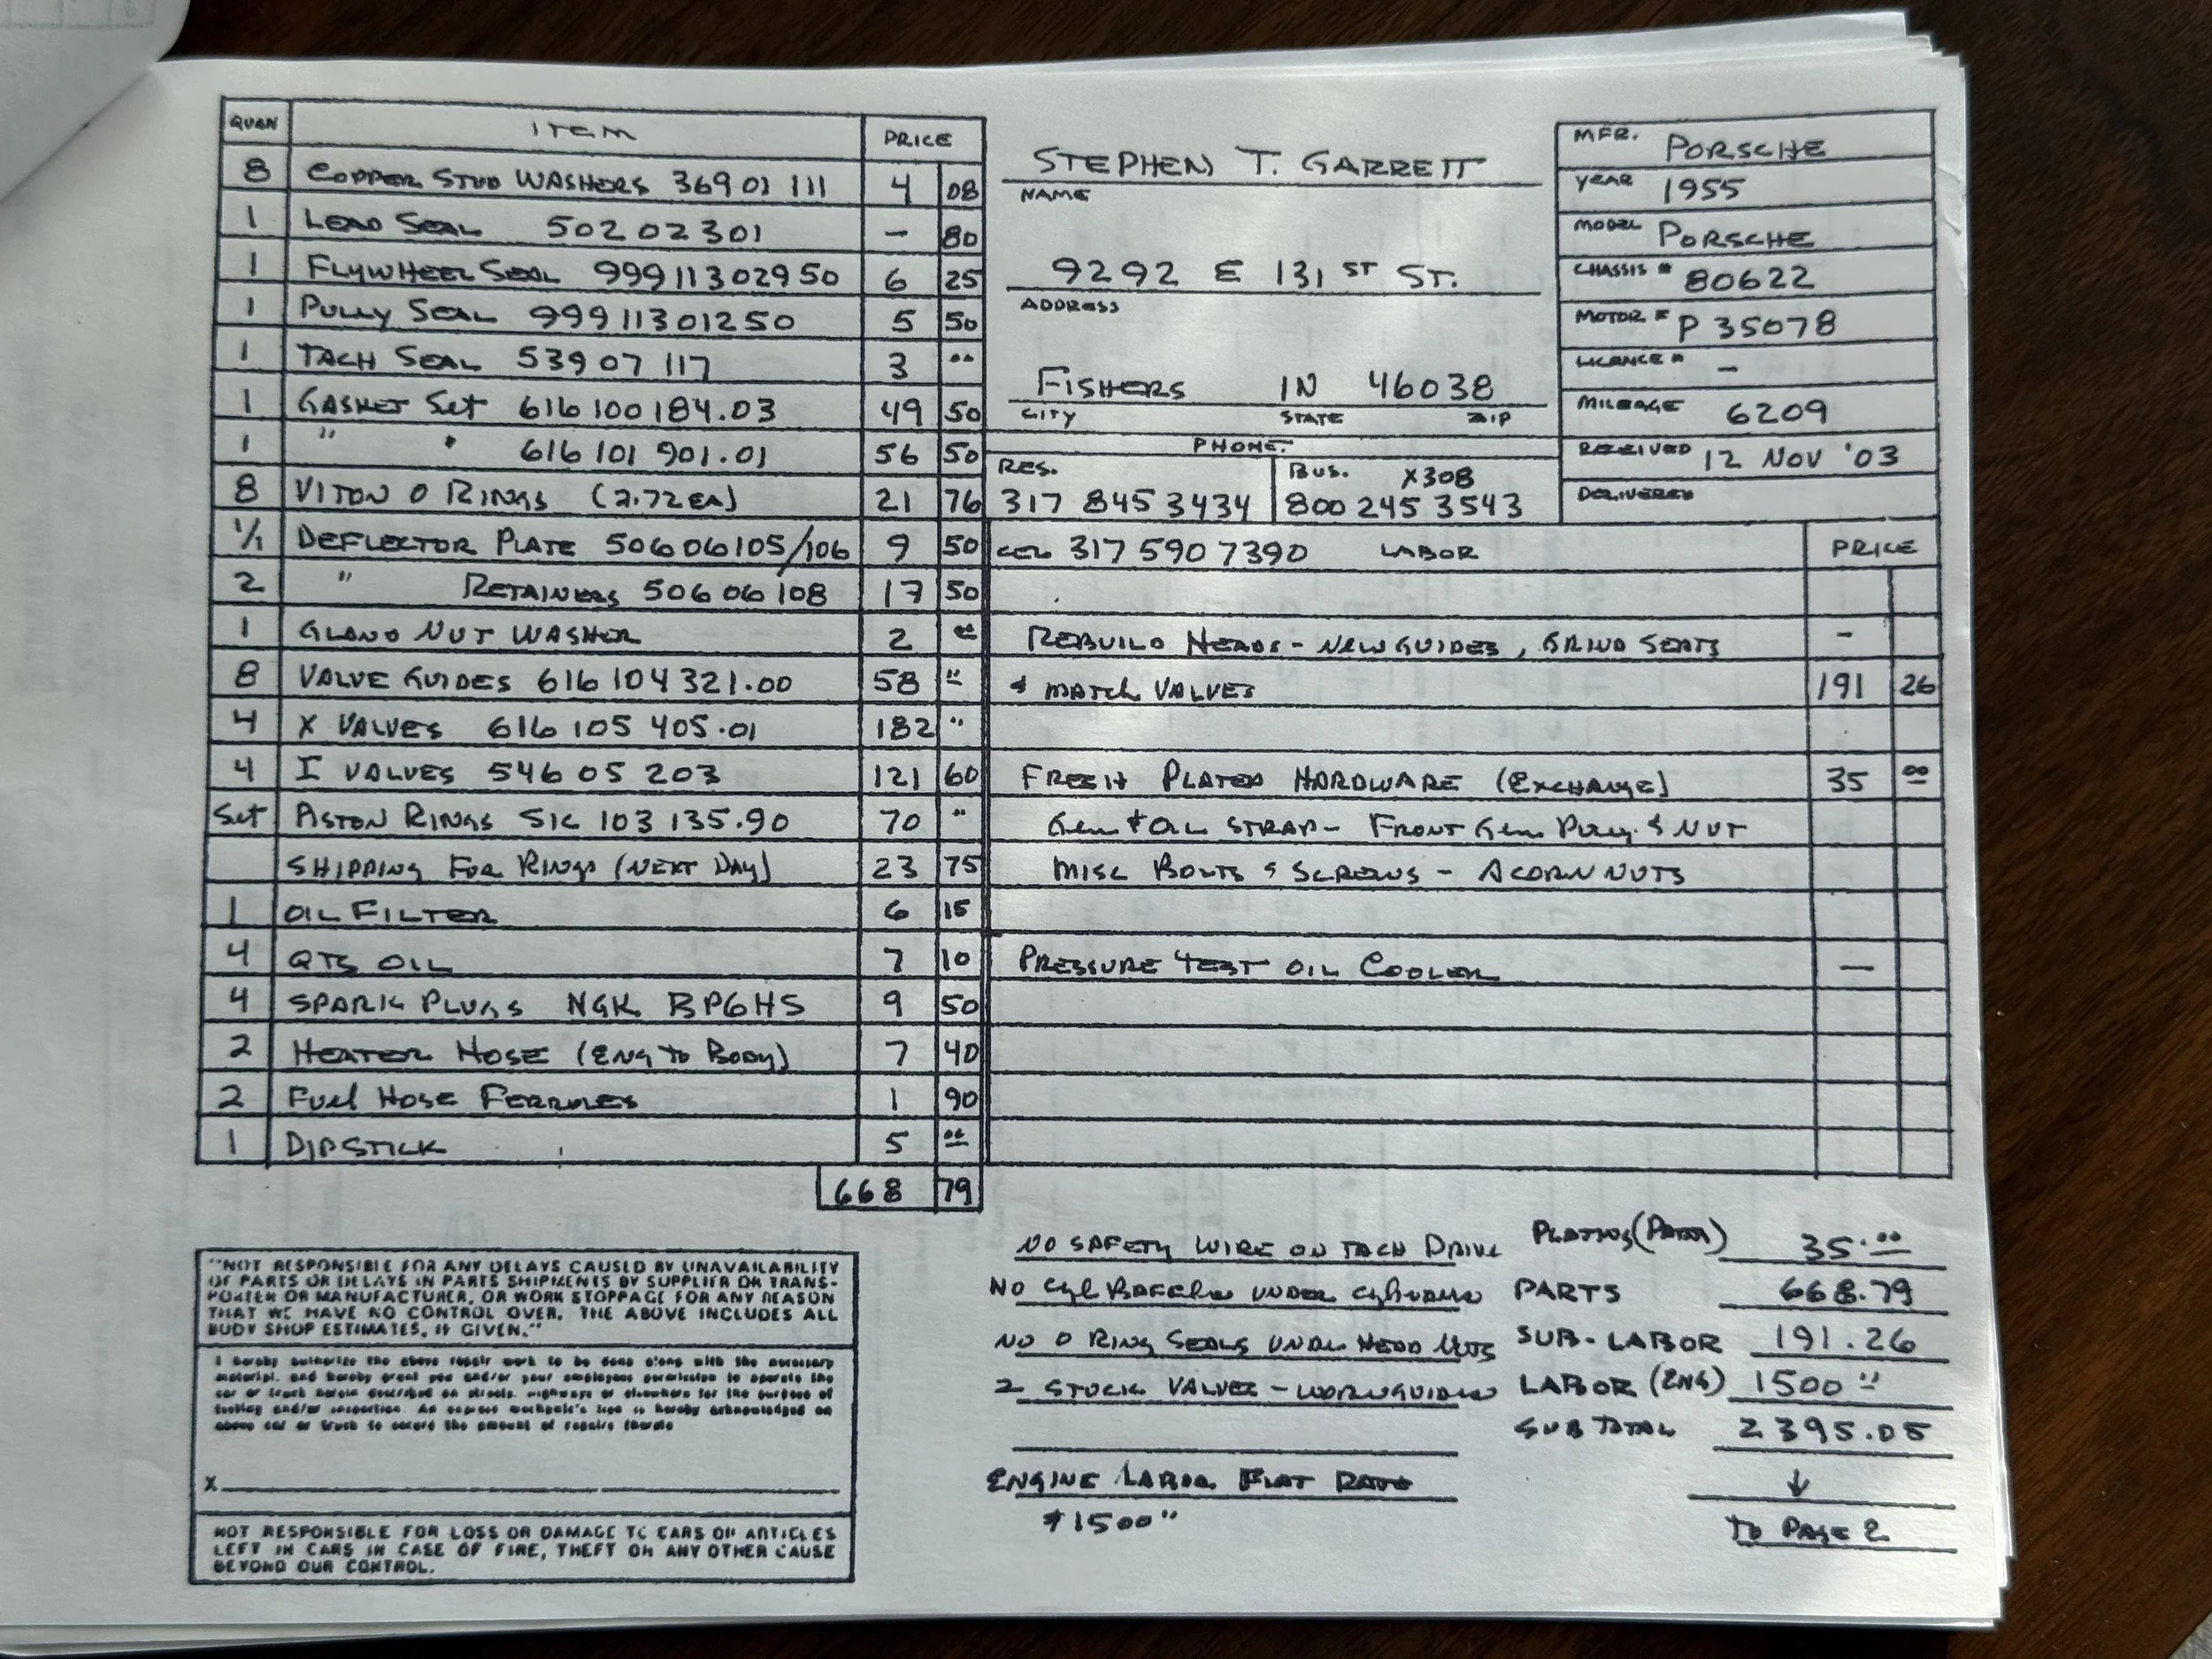 QUAN ITEM PRICE
8 COPPER STUD WASHERS 369 01 111 4 08
1 LEAD SEAL 502 02 301 - 80
1 FLYWHEEL SEAL 999 113 029 50 6 25
1 PULLY SEAL 999 113 012 50 5 50
1 TACH SEAL 539 07 117 3 00
1 GASKET SET 616 100 184.03 49 50
1 " " 616 101 901.01 56 50
8 VITON O RINGS (2.72 EA) 21 76
1/1 DEFLECTOR PLATE 506 06 105/106 9 50
2 " RETAINERS 506 06 108 17 50
1 GLAND NUT WASHER 2 00
8 VALVE GUIDES 616 104 321.00 58 "
4 X VALVES 616 105 405.01 182 "
4 I VALVES 546 05 203 121 60
Set PISTON RINGS SIK 103 135.90 70 "
SHIPPING FOR RINGS (NEXT DAY) 23 75
1 OIL FILTER 6 15
4 QTS OIL 7 10
4 SPARK PLUGS NGK BP6HS 9 50
2 HEATER HOSE (ENG TO BODY) 7 40
2 FUEL HOSE FERRULES 1 90
1 DIPSTICK 5 00
668 79
STEPHEN T. GARRETT
NAME
9292 E 131 ST ST.
ADDRESS
FISHERS IN 46038
CITY STATE ZIP
PHONE.
RES. BUS. X308
317 845 3434 800 245 3543
MFR. PORSCHE
YEAR 1955
MODEL PORSCHE
CHASSIS # 80622
MOTOR # P 35078
LICANCE # -
MILEAGE 6209
RECEIVED 12 NOV '03
DELIVERED
CEL 317 590 7390 LABOR PRICE
REBUILD HEADS - NEW GUIDES, GRIND SEATS -
& MATCH VALVES 191 26
FRESH PLATED HARDWARE (EXCHANGE) 35 00
GEN & OIL STRAP - FRONT GEN PULLY & NUT
MISC BOLTS & SCREWS - ACORN NUTS
PRESSURE TEST OIL COOLER —
NO SAFETY WIRE ON TACH DRIVE PLATING (PARTS) 35.00
NO CYL BAFFLES UNDER CYLINDERS PARTS 668.79
NO O RING SEALS UNDER HEAD NUTS SUB-LABOR 191.26
2 STOCK VALVES - WORN GUIDES LABOR (ENG) 1500 "
SUB TOTAL 2395.05
ENGINE LABOR FLAT RATE ↓
$1500 " TO PAGE 2
"NOT RESPONSIBLE FOR ANY DELAYS CAUSED BY UNAVAILABILITY
OF PARTS OR DELAYS IN PARTS SHIPMENTS BY SUPPLIER OR TRANS-
PORTER OR MANUFACTURER, OR WORK STOPPAGE FOR ANY REASON
THAT WE HAVE NO CONTROL OVER. THE ABOVE INCLUDES ALL
BODY SHOP ESTIMATES, IF GIVEN."
I hereby authorize the above repair work to be done along with the necessary
material, and hereby grant you and/or your employees permission to operate the
car or truck herein described on streets, highways or elsewhere for the purpose of
testing and/or inspection. An express mechanic's lien is hereby acknowledged on
above car or truck to secure the amount of repairs thereto
X
NOT RESPONSIBLE FOR LOSS OR DAMAGE TO CARS OR ARTICLES
LEFT IN CARS IN CASE OF FIRE, THEFT OR ANY OTHER CAUSE
BEYOND OUR CONTROL.